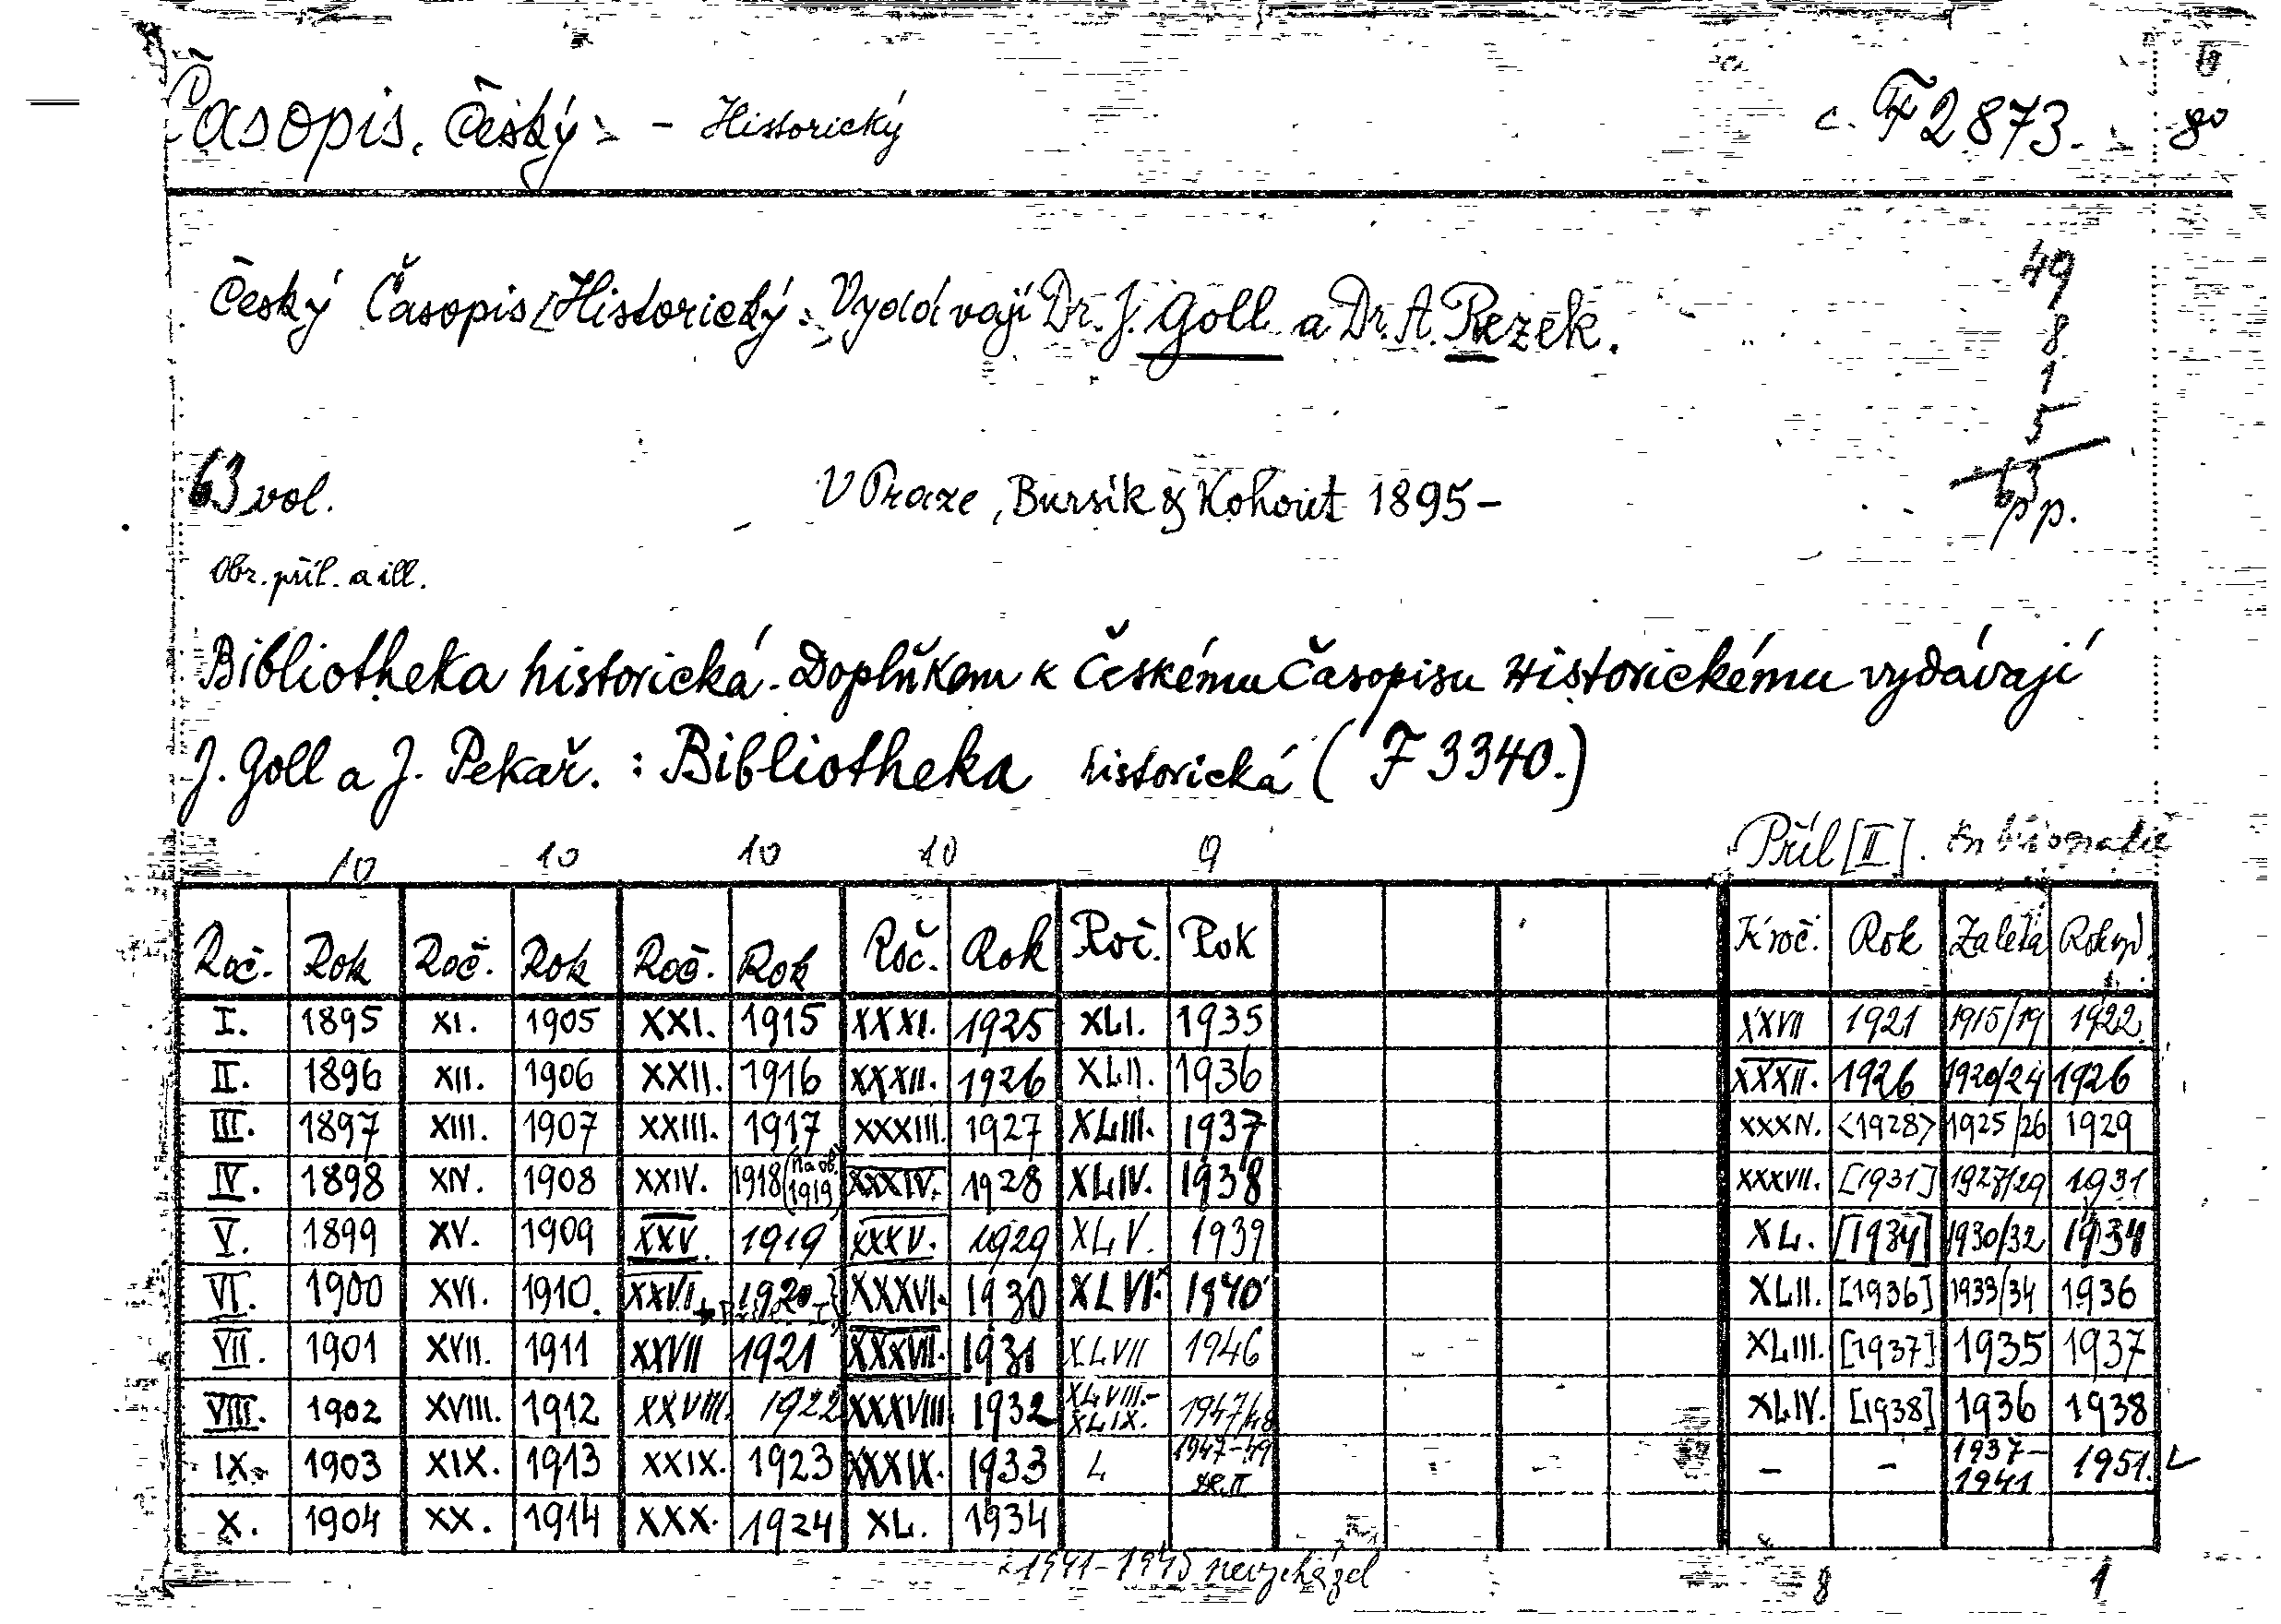 Časopis. Český - Historický c. F 2873. 8°
Český Časopis Historický. Vydávají Dr. J. Goll a Dr. A. Rezek.
49
8
1
5
63
63 vol. V Praze, Bursík & Kohout 1895- pp.
Obr. příl. a ill.
Bibliotheka historická. Doplňkem k Českému Časopisu Historickému vydávají
J. Goll a J. Pekař. : Bibliotheka historická ( F 3340.)
10 10 10 10 9 Příl [II].
Roč. Rok Roč. Rok Roč. Rok Roč. Rok Roč. Rok K roč. Rok Za léta Rok vyd.
I. 1895 XI. 1905 XXI. 1915 XXXI. 1925 XLI. 1935 XXVII 1921 1915/19 1922
II. 1896 XII. 1906 XXII. 1916 XXXII. 1926 XLII. 1936 XXXII. 1926 1920/24 1926
III. 1897 XIII. 1907 XXIII. 1917 XXXIII. 1927 XLIII. 1937 XXXIV. <1928> 1925/26 1929
IV. 1898 XIV. 1908 XXIV. 1918 (na ob. 1919) XXXIV. 1928 XLIV. 1938 XXXVII. [1931] 1927/29 1931
V. 1899 XV. 1909 XXV. 1919 XXXV. 1929 XLV. 1939 XL. [1934] 1930/32 1934
VI. 1900 XVI. 1910. XXVI. 1920 XXXVI. 1930 XLVI. 1940 XLII. [1936] 1933/34 1936
VII. 1901 XVII. 1911 XXVII 1921 XXXVII. 1931 XLVII 1946 XLIII. [1937] 1935 1937
VIII. 1902 XVIII. 1912 XXVIII. 1922 XXXVIII 1932 XLVIII.- XLIX. 1947/48 XLIV. [1938] 1936 1938
IX. 1903 XIX. 1913 XXIX. 1923 XXXIX. 1933 L 1947-49 - - 1937-1941 1951.
X. 1904 XX. 1914 XXX. 1924 XL. 1934
× 1941-1945 nevycházel 8 1